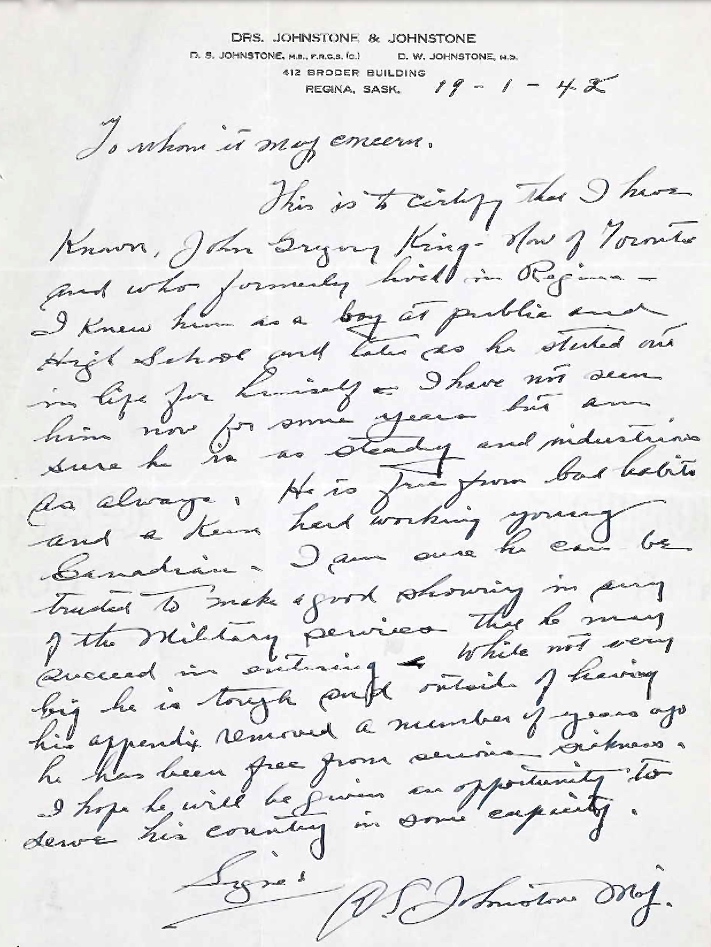 DRS. JOHNSTONE & JOHNSTONE
D. S. JOHNSTONE, M.B., F.R.C.S. (C.) D. W. JOHNSTONE, M.D.
412 BRODER BUILDING
REGINA, SASK. 19-1-42
To whom it may concern.
This is to certify that I have
Known, John Gregory King - Now of Toronto
and who formerly lived in Regina -
I Knew him as a boy at public and
High School and later as he started out
in life for himself - I have not seen
him now for some years but am
sure he is as steady and industrious
as always. He is free from bad habits
and a Keen hard working young
Canadian - I am sure he can be
trusted to make a good showing in any
of the Military services that he may
succeed in entering - While not very
big he is tough and outside of having
his appendix removed a number of years ago
he has been free from serious sickness.
I hope he will be given an opportunity to
serve his country in some capacity.
Signed
D S Johnstone Maj.